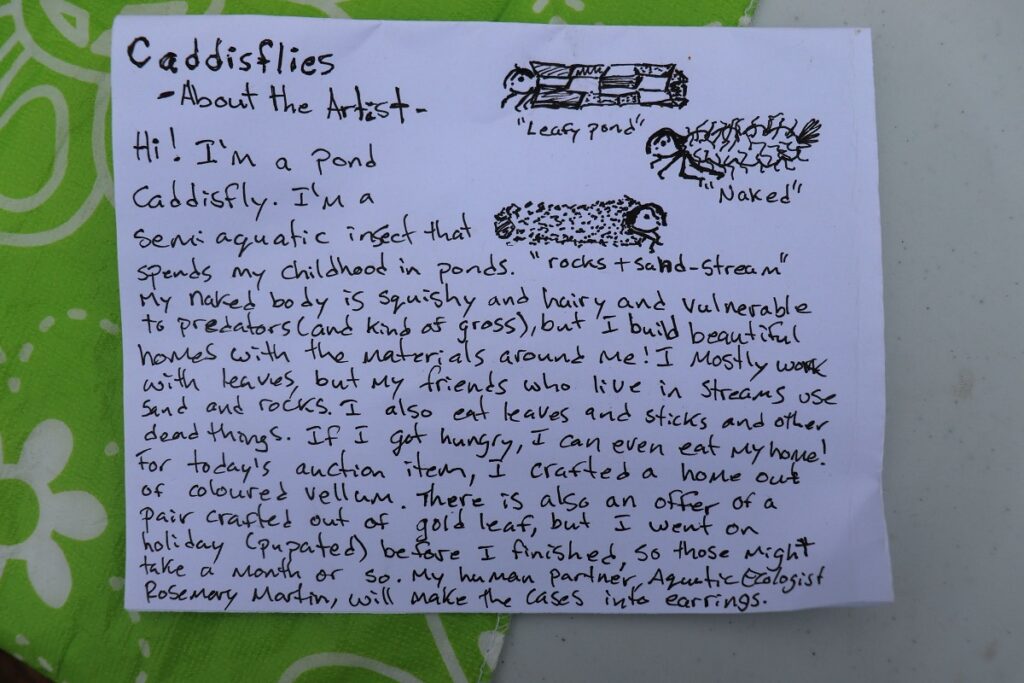 Caddisflies
- About the Artist -
"Leafy pond"
"Naked"
Hi! I'm a pond
Caddisfly. I'm a
semi aquatic insect that
spends my childhood in ponds. "rocks + sand-stream"
My naked body is squishy and hairy and vulnerable
to predators (and kind of gross), but I build beautiful
homes with the materials around me! I mostly work
with leaves, but my friends who live in streams use
sand and rocks. I also eat leaves and sticks and other
dead things. If I got hungry, I can even eat my home!
For today's auction item, I crafted a home out
of coloured vellum. There is also an offer of a
pair crafted out of gold leaf, but I went on
holiday (pupated) before I finished, so those might
take a month or so. My human partner, Aquatic Ecologist
Rosemary Martin, will make the cases into earrings.